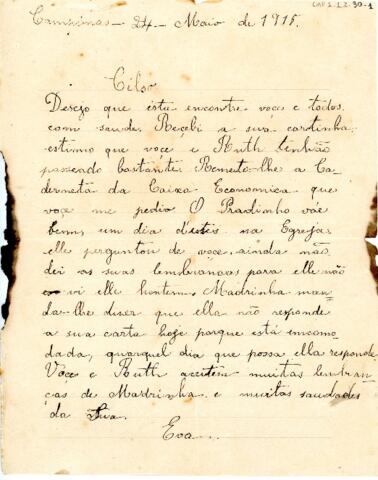 CAP 1.12.30-1
Campinas - 24 - Maio de 1915.
Cilso
Desejo que esta encontre você e todos
com saude. Recebi a sua cartinha
estimo que você e Ruth tenhão
passeado bastante. Remeto-lhe a Ca-
derneta da Caixa Economica que
voçe me pedio O Pradinho vae
bem, um dia d'estes na Egreja
elle perguntou de voce, ainda não
dei as suas lembranças para elle não
vi elle hontem. Madrinha man-
da-lhe diser que ella não responde
a sua carta hoje porque está encomo
dada, quarquel dia que possa ella responde
Voçe e Ruth acceitem muitas lembran-
ças de Madrinha e muitas saudades
da Sua.
Eva